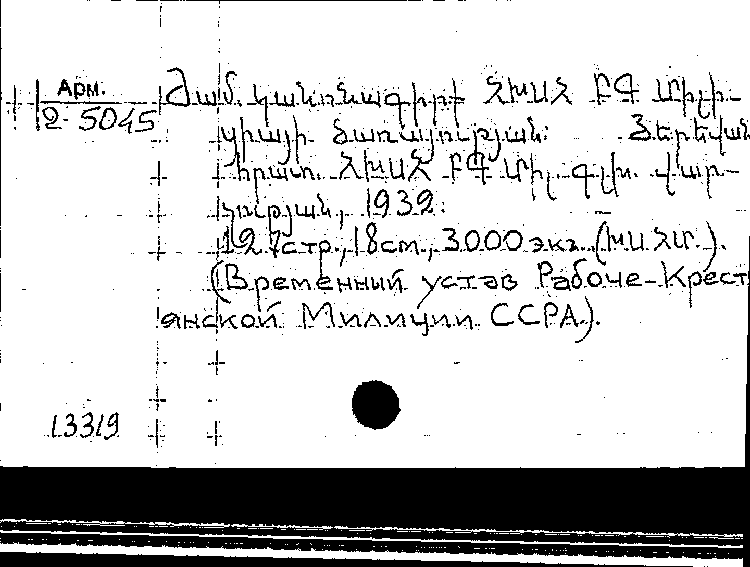 Арм.
2-5045
Ժամ. կանոնագիրք ՀԽՍՀ ԲԳ Միլի-
ցիայի ծառայության: Յերեվան
հրատ. ՀԽՍՀ ԲԳ Միլ. գլխ. վար-
չության, 1932.
127стр., 18см., 3000 экз.
(Временный устав Рабоче-Крест
янской Милиции ССРА).
13319